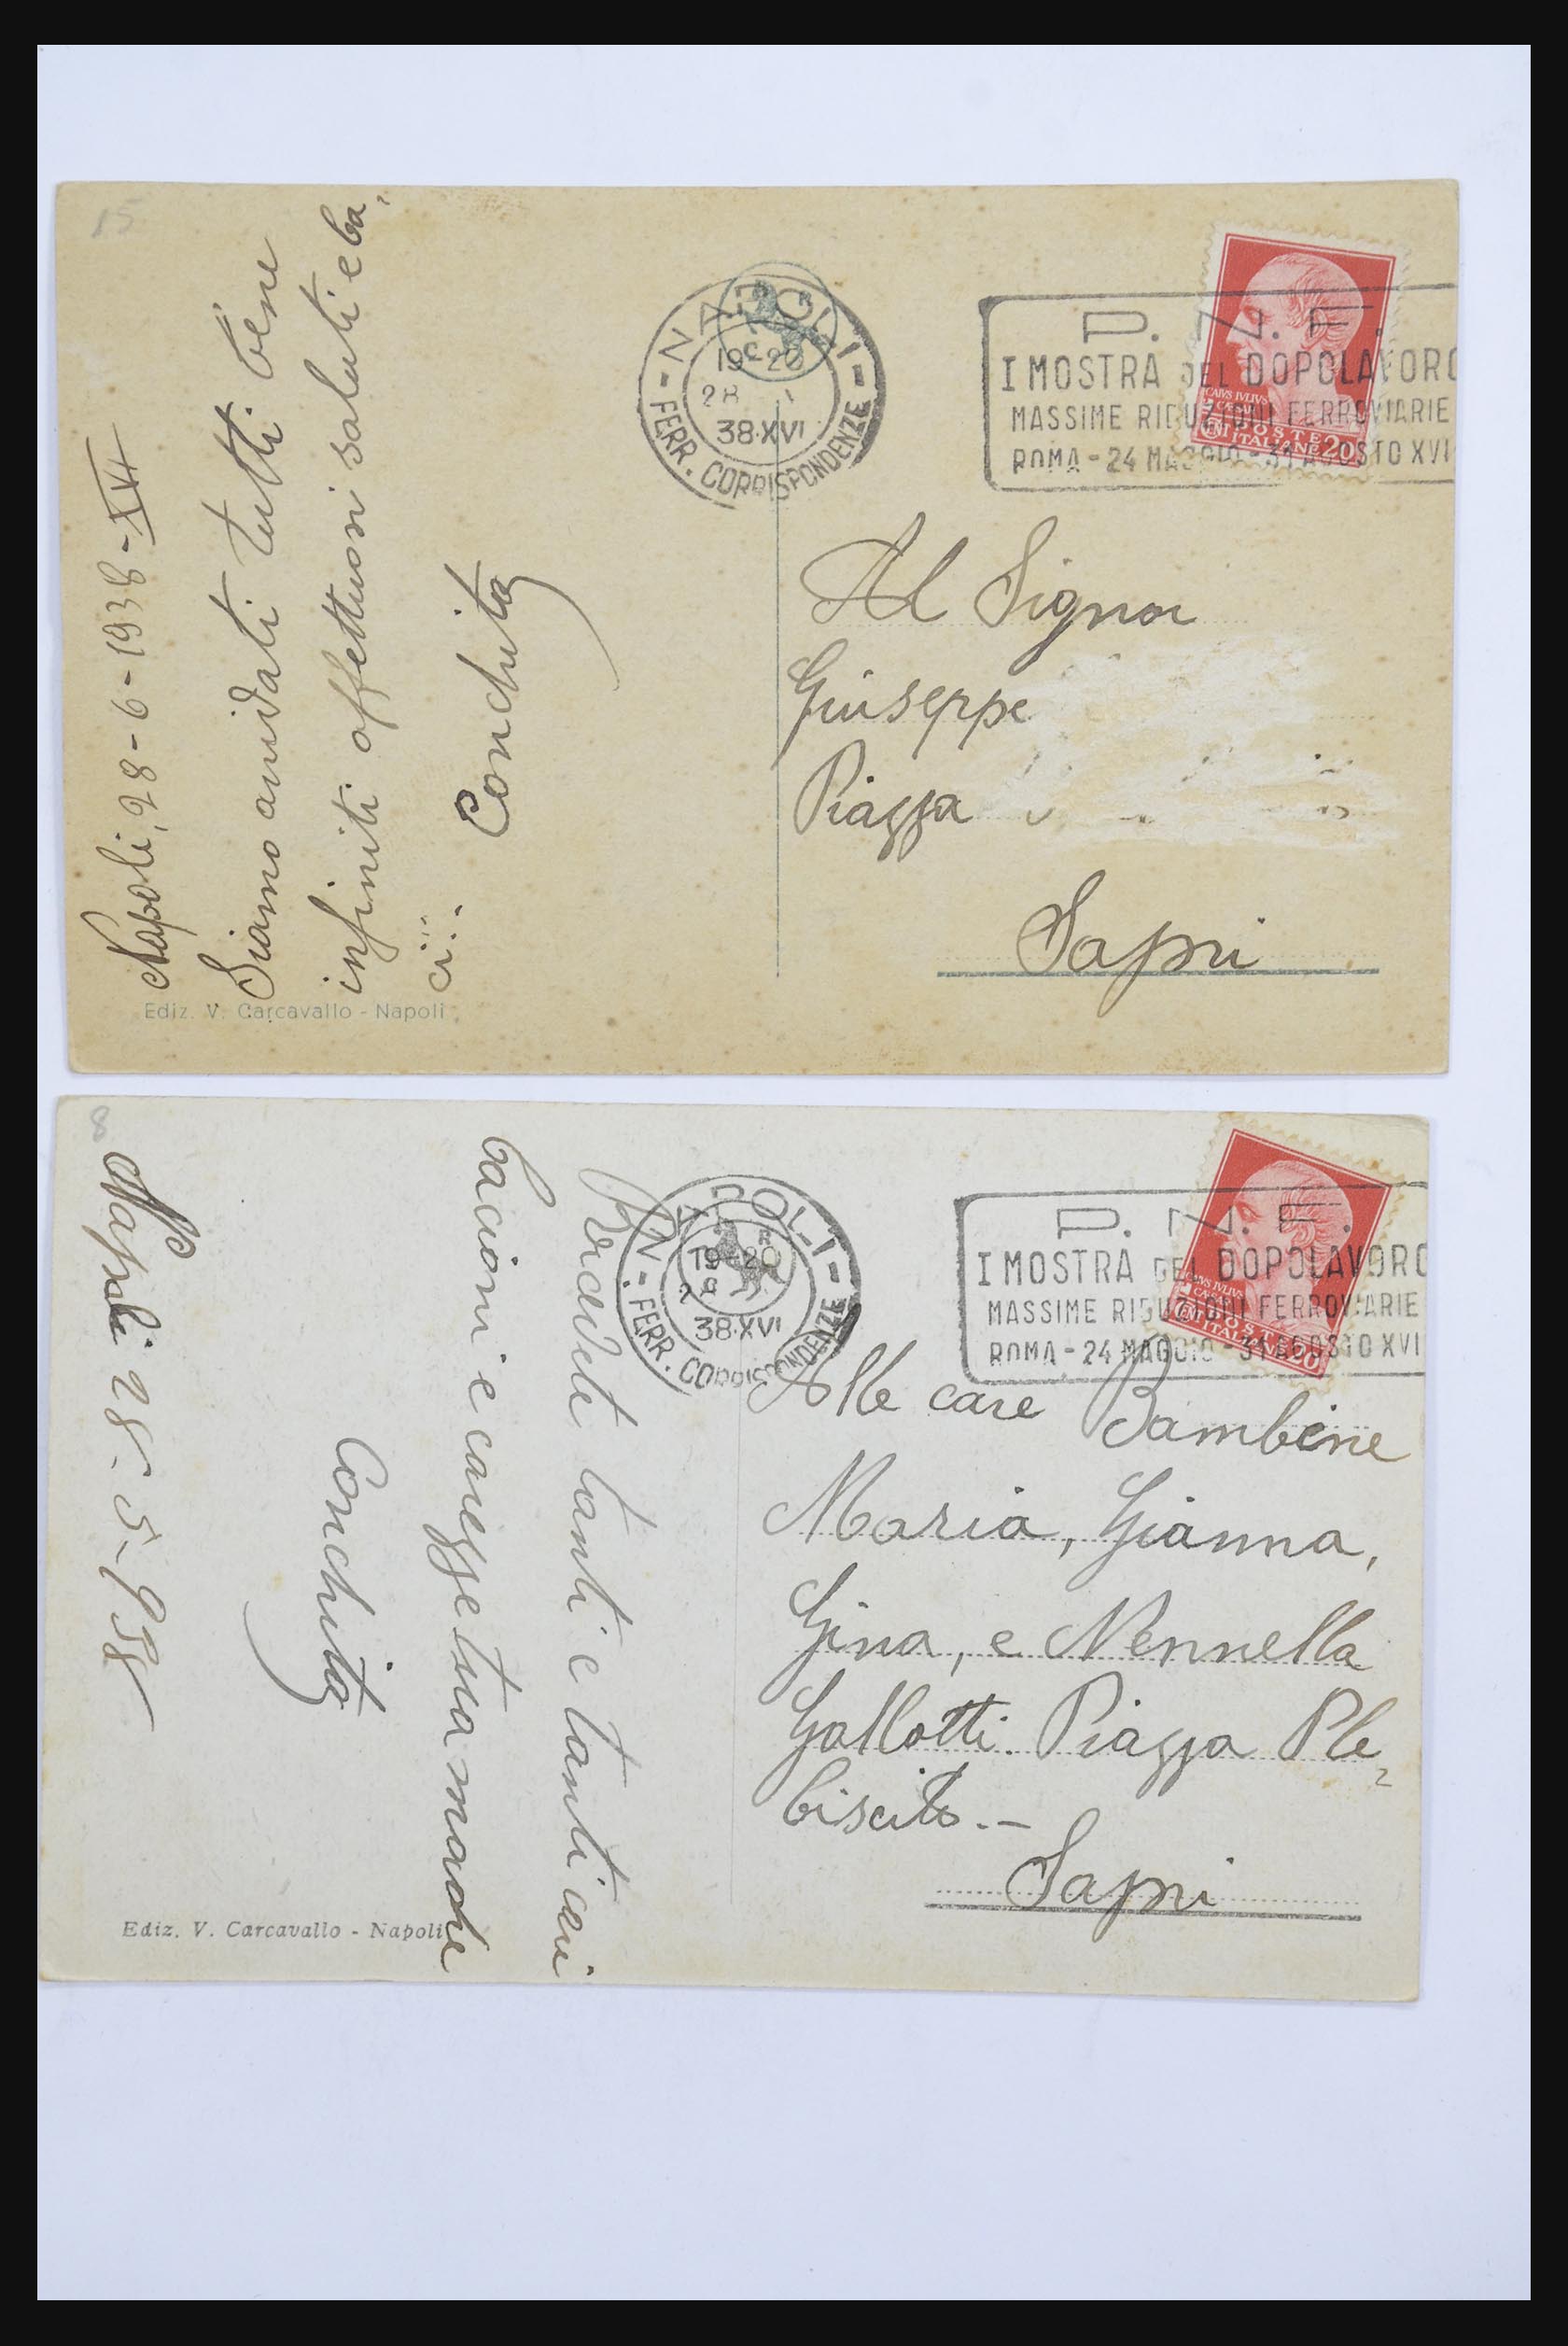 15
Napoli, 28-6-1938-XVI
Siamo anidati tutti bene
infiniti affettuosi saluti e ba-
ci...
Conchita
Ediz. V. Carcavallo - Napoli
NAPOLI
19-20
28
38·XVI
FERR. CORRISPONDENZE
P. N. F.
I MOSTRA DEL DOPOLAVORO
MASSIME RIDUZIONI FERROVIARIE
ROMA - 24 MAGGIO - 31 AGOSTO XVI
CAIVS IVLIVS
CÆSAR
POSTE
CENT ITALIANE 20
Al Signor
Giuseppe
Piazza
Sapri
8
Napoli 28-5-938
tanti e tanti cari
bacioni e carezze tua madre
Conchita
Ediz. V. Carcavallo - Napoli
NAPOLI
19-20
38·XVI
FERR. CORRISPONDENZE
P. N. F.
I MOSTRA DEL DOPOLAVORO
MASSIME RIDUZIONI FERROVIARIE
ROMA - 24 MAGGIO - 31 AGOSTO XVI
CAIVS IVLIVS
CÆSAR
POSTE
CENT ITALIANE 20
Alle care Bambine
Maria, Gianna,
Gina, e Nennella
Gallotti. Piazza Ple-
biscito.-
Sapri